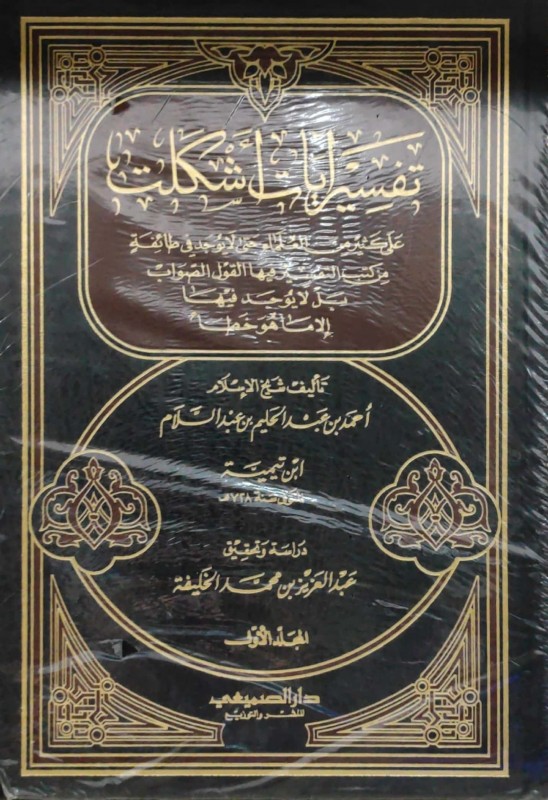 تفسير آيات أشكلت
على كثير من العلماء حتى لا يوجد في طائفة
من كتب التفسير فيها القول الصواب
بل لا يوجد فيها
إلا ما هو خطأ
تأليف شيخ الإسلام
أحمد بن عبد الحليم بن عبد السلام
ابن تيمية
المتوفى سنة ٧٢٨هـ
دراسة وتحقيق
عبد العزيز بن محمد الخليفة
المجلد الأول
دار الصميعي
للنشر والتوزيع